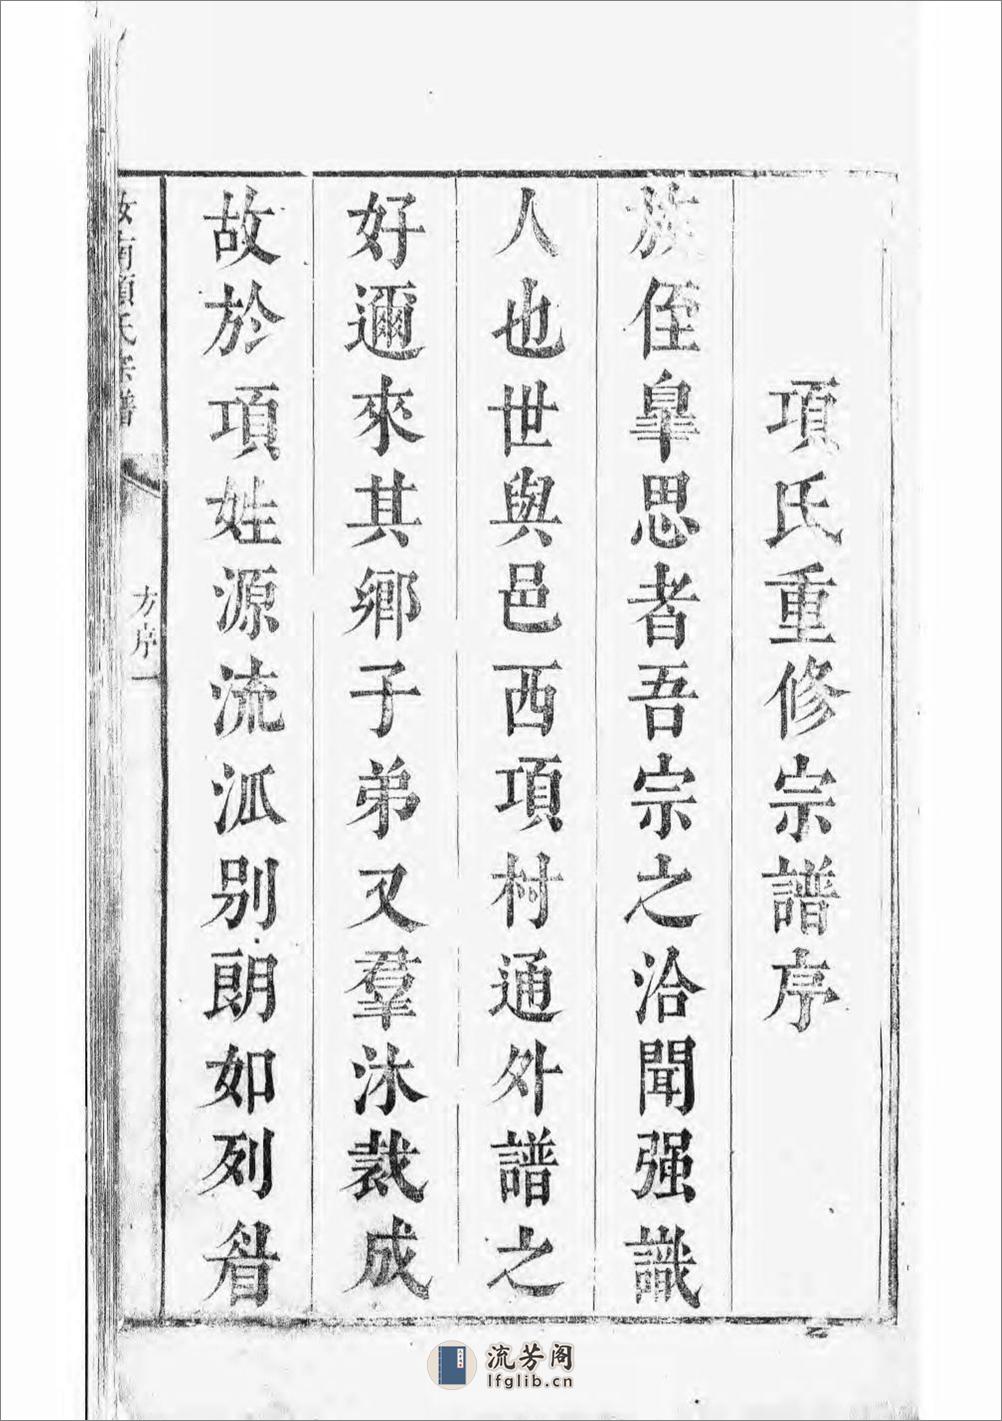 項氏重修宗譜序
族侄皐思者吾宗之洽聞强識
人也世與邑西項村通外譜之
好邇來其鄉子弟又羣沐裁成
故於項姓源流派别朗如列眉
汝南項氏宗譜
方序
一
流芳阁
lfglib.cn